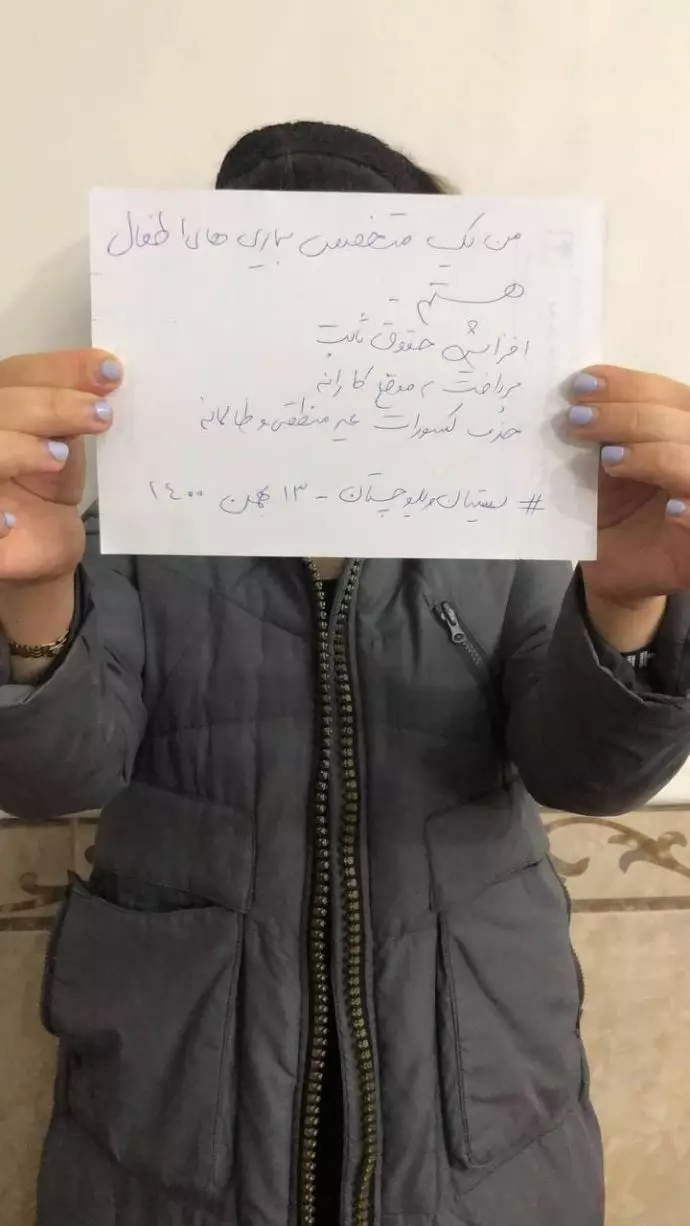 من یک متخصص بیماری های اطفال
هستم
افزایش حقوق ثابت
پرداخت به موقع کارانه
حذف کسورات غیر منطقی و ظالمانه
# سیستان و بلوچستان - ۱۳ بهمن ۱۴۰۰